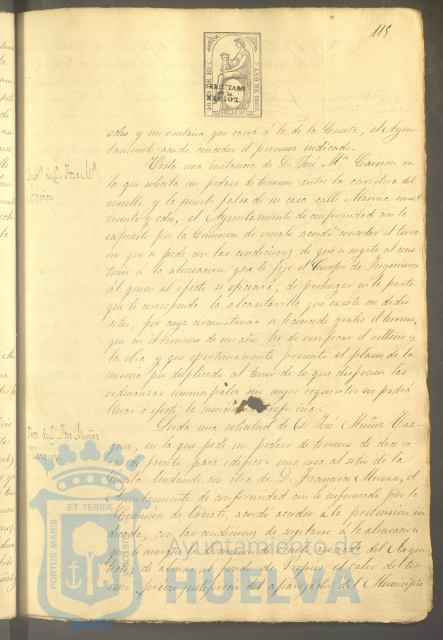 115
HABILITADO
POR LA
NACION
ocho y un ventana que caera á la de la Cuesta, el Ayun-
tamiento acordó conceder el permiso indicado.
Vista una instancia de D. José Mª Carrion en
la que solicita un pedazo de terreno entre la carretera del
muelle y la puerta falsa de su casa calle Marina numº
treinta y ocho, el Ayuntamiento de conformidad con lo
expuesto por la Comision de ornato acordó conceder el terre-
no que se pide con las condiciones de que se sugete al cons-
truir á la alineacion que le fije el Cuerpo de Ingenieros
á quien al efecto se oficiará; de prolongar en la parte
que le corresponda la alcantarilla que existe en dicho
sitio, por cuya circunstancia se le concede gratis el terreno,
que en el termino de un año ha de verificar el relleno y
la obra y que oportunamente presente el plano de la
misma por duplicado al tenor de lo que disponen las
ordenanzas municipales sin cuyos requisitos no podrá
llevar á efecto la
Leida una solicitud de D. José Muñoz Vaz-
quez, en la que pide un pedazo de terreno de diez va-
ras de frente para edificar una casa al sitio de la
lindando con otra de D. Francisco Moreno, el
Ayuntamiento de conformidad con lo informado por la
Comision de Ornato, acordó acceder á la pretension in-
dicada, con las condiciones de sugetarse á la alineacion
que le marque
de abonar al fondo de Propios el valor del ter-
reno, previo justiprecio del aparejador del Municipio
D. José Mª
Carrion.
D. José Muñoz
Vazquez
PORTUS MARIS ET TERRÆ
Ayuntamiento de
HUELVA